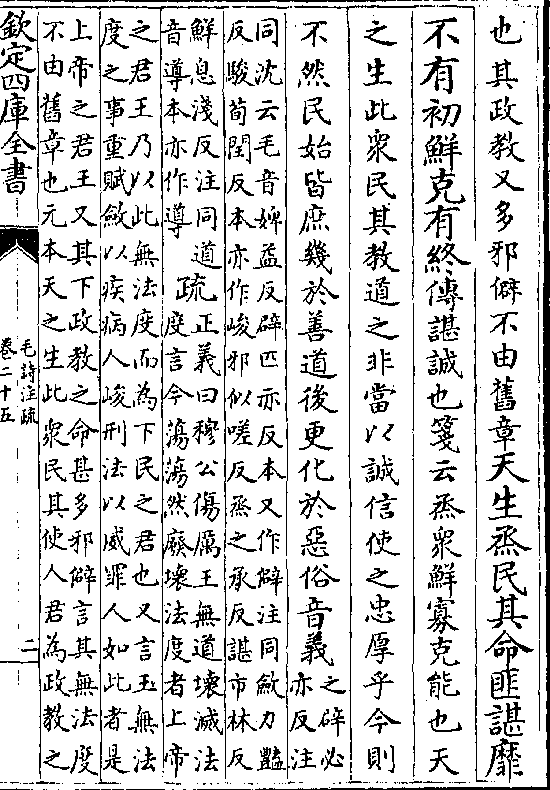 也其政教又多邪僻不由舊章天生烝民其命匪諶靡
不有初鮮克有終傳諶誠也箋云烝衆鮮寡克能也天
之生此衆民其教道之非當以誠信使之忠厚乎今則
不然民始皆庶幾於善道後更化於惡俗音義之辟必
亦反注
同沈云毛音婢益反辟匹亦反本又作僻注同斂力豔
反駿荀閏反本亦作峻邪似嗟反烝之承反諶市林反
鮮息淺反注同道
音導本亦作導
疏正義曰穆公傷厲王無道壞滅法
度言今蕩蕩然廢壞法度者上帝
之君王乃以此無法度而為下民之君也又言王無法
度之事重賦斂以疾病人峻刑法以威罪人如此者是
上帝之君王又其下政教之命甚多邪僻言其無法度
不由舊章也元本天之生此衆民其使人君為政教之
欽定四庫全書
毛詩注疏
卷二十五
二